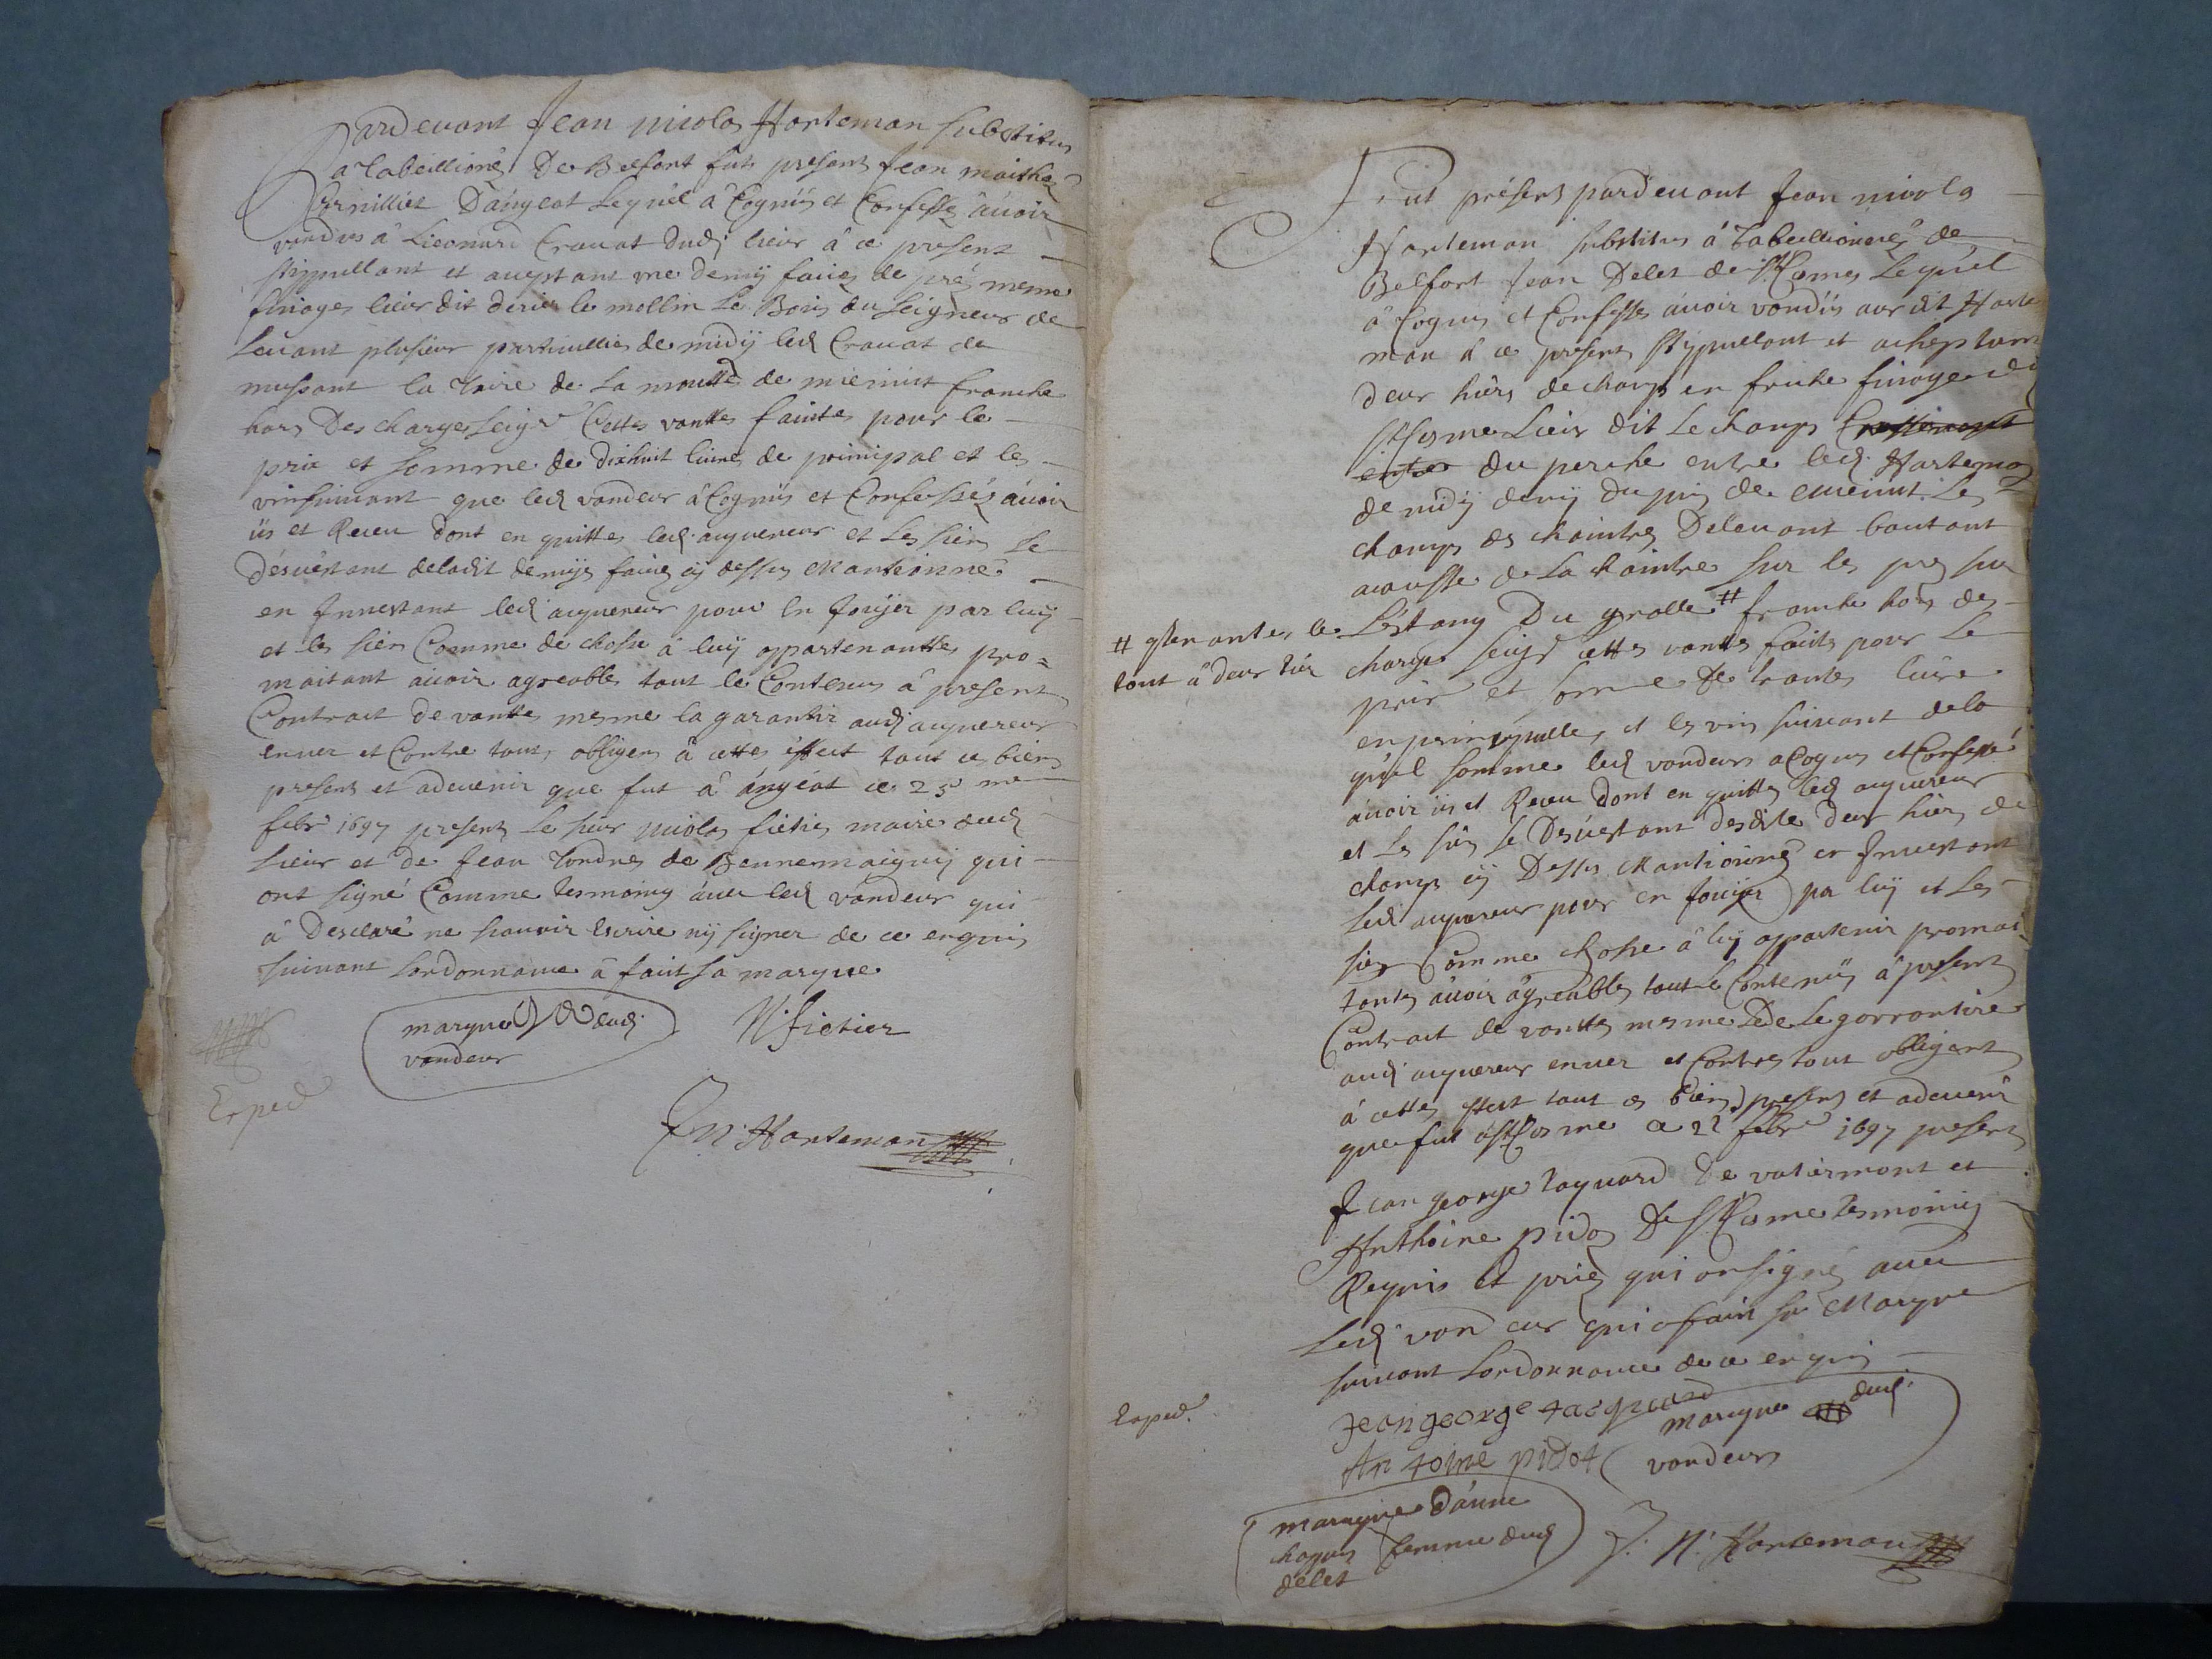 Pardeuant Jean nicolas Harteman substitus
a Tabeillione De Belfort fut present Jean maithe
Cornillier D'angeot Lequel â Cognus et Confesse auoir
vondus â Lieonard Crauat dudt lieux â ce present
stippullant et aceptant vne demÿ fauce de pré mesme
finage lieux dit derier le mollin Le Bois du seigneur de
Leuant plusieur particullier de midÿ led Crauat de
mussant la Voire de La moutte de mieinut franche
hors Des charges seigr Cette vantte fainte pour le
prix et somme de Dixhuit liure de principal et les
vin suiuant que led vondeur â Cognus et Confessés auoir
üs et Receu dont en quitte led aquereur et Les sien se
désuêstant deladit demÿe fauce cÿ dessus Mantionne
en Jnnestant led aquereur pour en Joüÿer par luÿ
et les sien Comme de chose â luÿ appartenantte pro=
maitant auoir agreable tout le Contenus â present
Contract de vantte mesme la garantir audt aquereur
enuer et Contre tout obligent â cette effect tout ces bien
present et aduenir que fut â ángéot ce 25 me
febr 1697 present Le sieur nicolas fietier maire dudt
Lieux et de Jean Tondre de Bennemaignÿ qui
ont signé Comme tesmoing áuec led vondeur qui
â Desclaré ne scauoir Escrire nÿ signer de ce enquis
suiuant Lordonnance â faict sa marque
marque dudt
vondeur
N. fietier
Exped
J N. Harteman
Fut présent pardeuant Jean nicolas
Harteman substitus â Tabeillionné de
Belfort Jean Delet de st Cosme Lequel
â Cognus et Confesse auoir vondüs audit Harte
man â ce present stÿpullant et acheptant
deux hürs de champ en friche finage dudt
st Cosme Lieux dit Le champ
entre du perche entre led Harteman
de midÿ
champ es chaintre Deleuant boutant
de La chaintre sur les prez sur
# Léstang Du grolle # franche hors de
charge seigr cette vantte faite pour Le
tout â deux tier
prix et somme De trante Liure
en principalle, et les vin suiuant dela
quel somme led vondeur a Cognus et Confessé
auoir üs et Receu dont en quitte led aquereur
et Les sien se Désuestant desdite deux hier de
champ cÿ Dessus Mantionné en Jnuestant
led aquereur pour en Jouÿer par luÿ et Les
sien Comme chose â luÿ appartenir promai
tante auoir agreable tout le Contenuÿ â present
Contract de vantte mesme De Le garrantire
audt aquereur enuer et Contre tout obligent
â cette effect tout ces bien present et aduenir
que fut â st Cosme ce 22 febr 1697 present
Jean george taquard De vatiermont et
Anthoine pidot De st Cosme tesmoing
Requis et prié qui on signé auec
Led vondeur qui a fait sa Marque
suiuant Lordonnance de ce enquis
Jean george tacquard
Antoine pidot
marque dudt
vondeur
Exped.
marque D'ánne
femme dudt
délet
J. N. Harteman